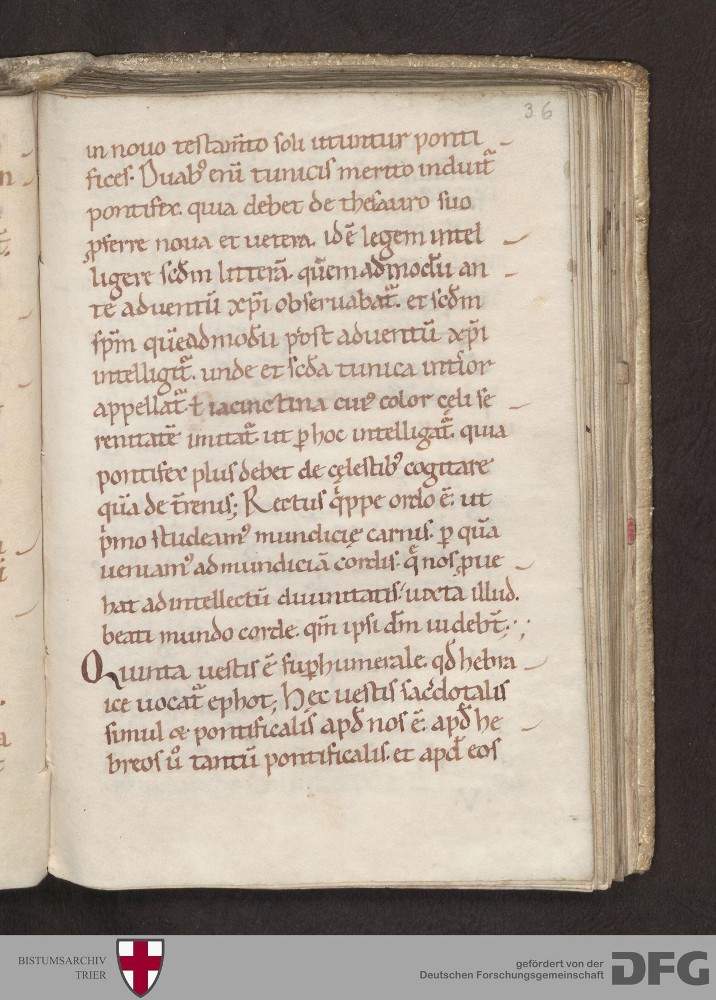 36
in nouo testam̅to soli utuntur ponti
fices. Duab᷒ enī tunicis merito induit᷑
pontifex. quia debet de thesauro suo
ꝓferre noua et uetera. id ē legem intel
ligere scd̅m litterā. quē admodū an
te aduentū xp̅i obseruabat᷑. et scd̅m
sp̅m quēadmodū post aduentū xp̅i
intelligit᷑. unde et scd̅a tunica int̅ior
appellat᷑. ł iacinctina cui᷒ color cęli se
renitatē imitat᷑. ut ꝑ hoc intelligat᷑. quia
pontifex plus debet de cęlestib᷒ cogitare
quā de t̅renis; Rectus q̇ppe ordo ē. ut
p̍mo studeam᷒ mundicię carnis. ꝑ quā
ueniam᷒ ad mundiciā cordis. q̄ nos ꝓue
hat ad intellectū diuinitatis. iuxta illud.
beati mundo corde. qm̅ ipsi dm̅ uidebt̅.
Quinta uestis ē suꝑhumerale. qd̅ hebra
ice uocat᷑ ephot; Hęc uestis sac̅dotalis
simul & pontificalis apd̅ nos ē. apd̅ he
breos u᷒ tantū pontificalis. et apd̅ eos
BISTUMSARCHIV
TRIER
gefördert von der
Deutschen Forschungsgemeinschaft
DFG